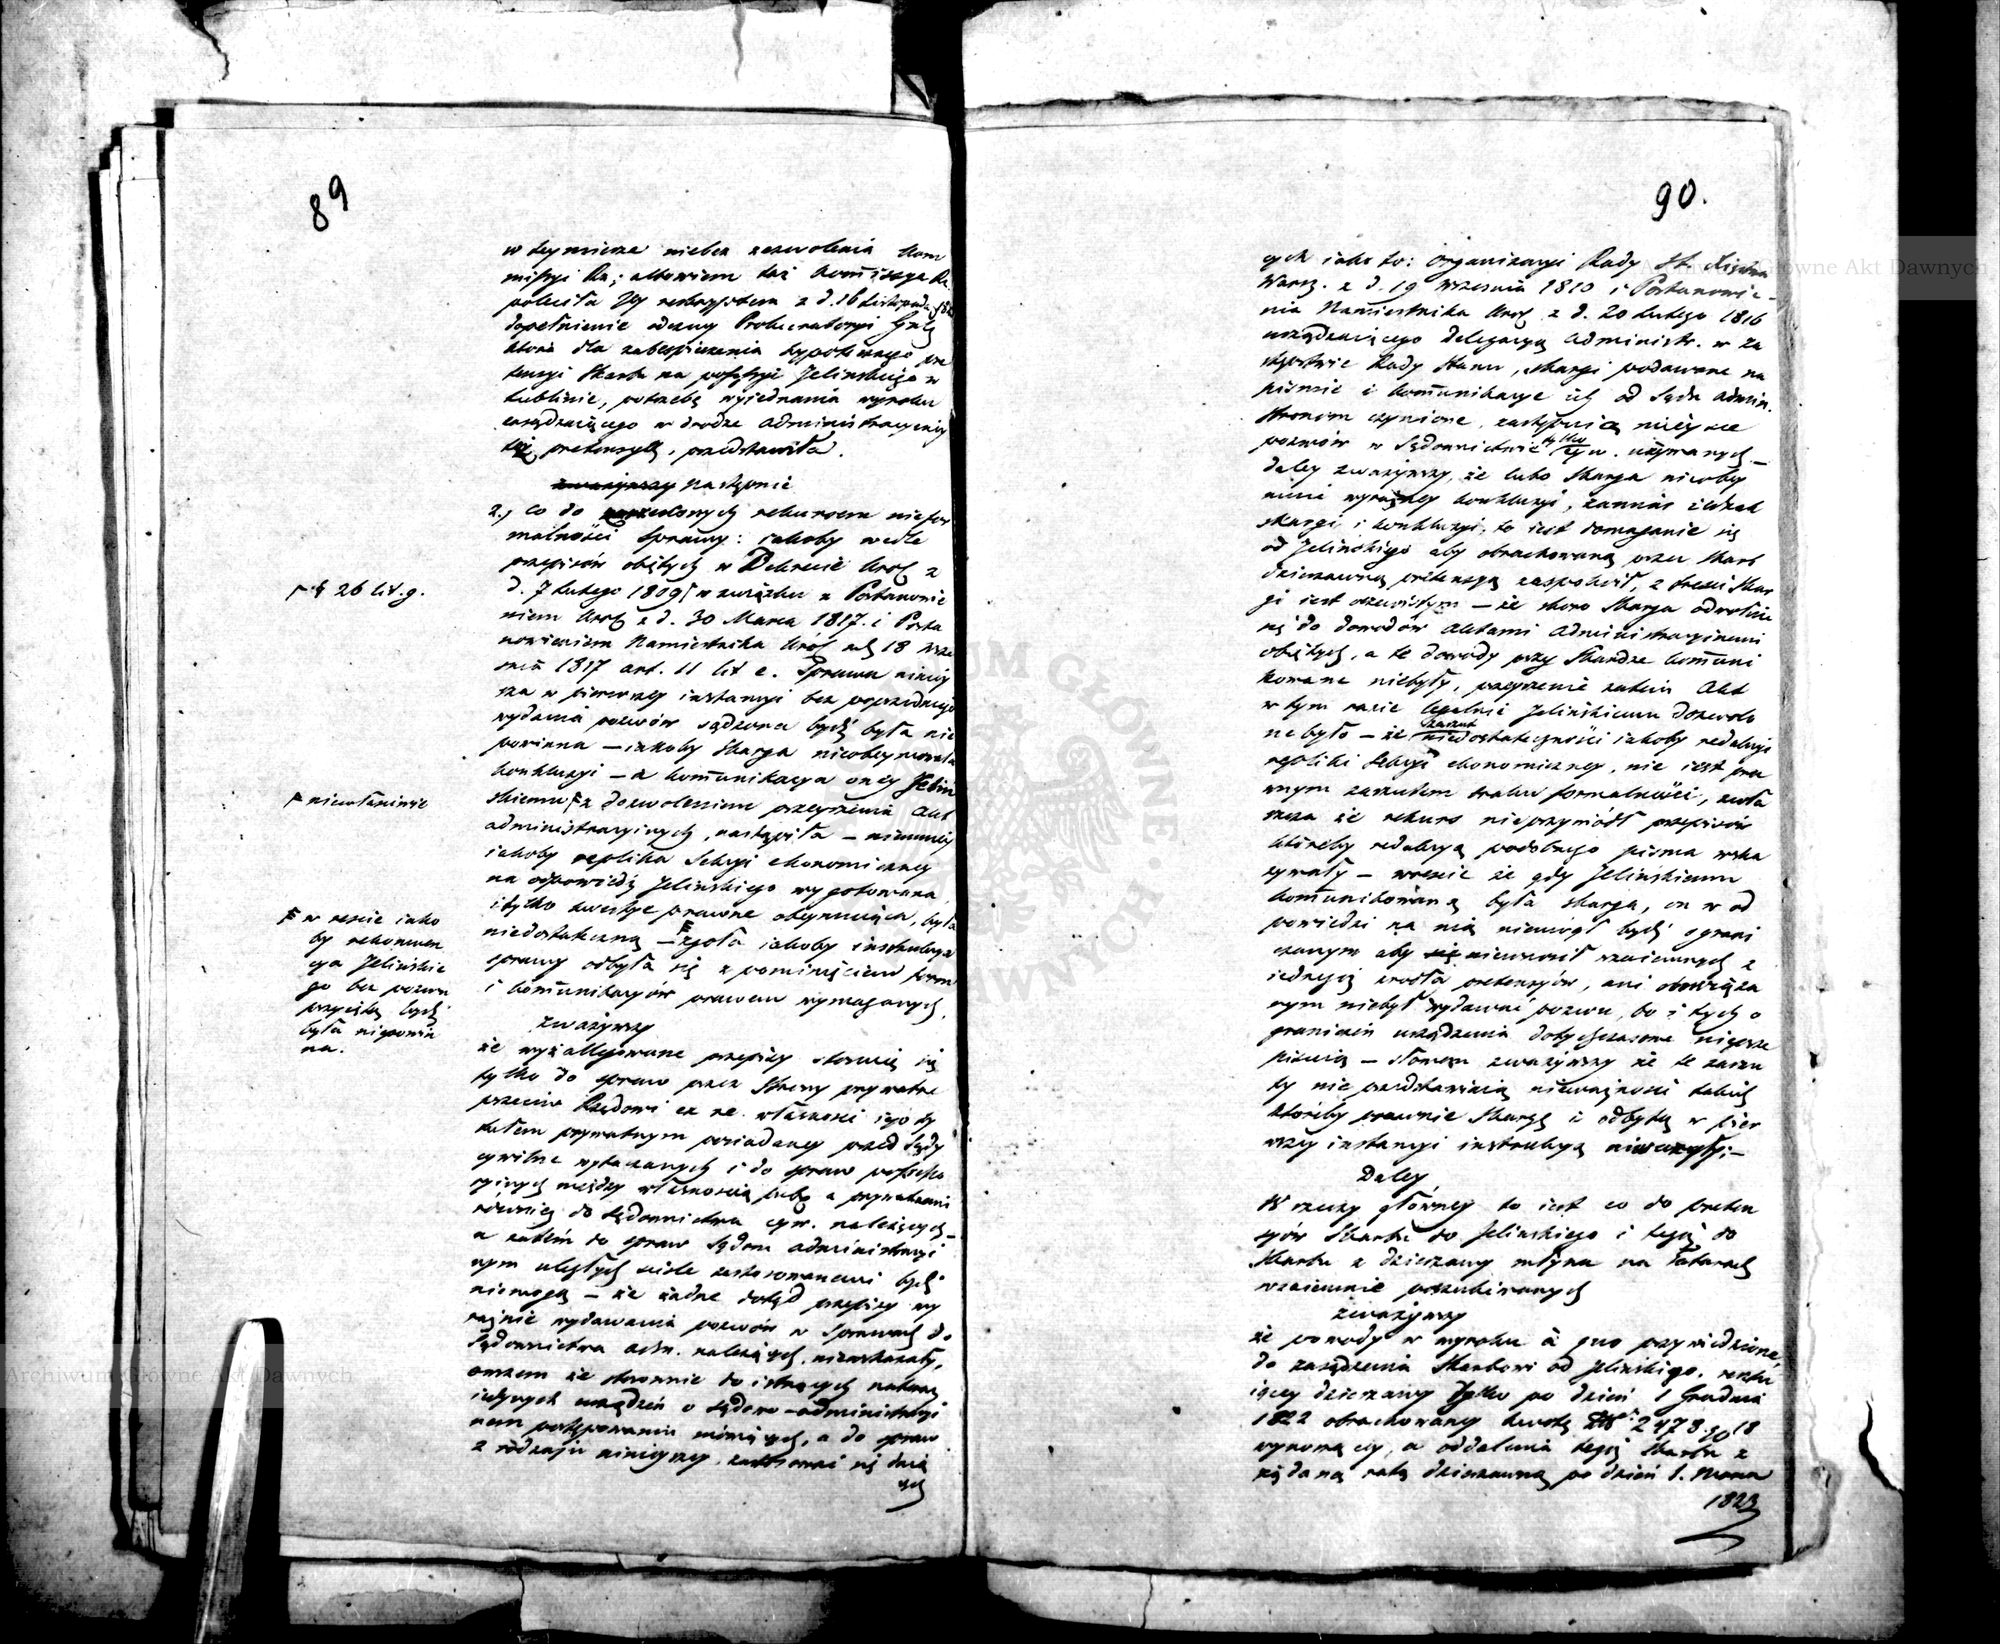 89
w teymierze niebez zezwolenia Kom
missyi Rz; albowiem taż Kommissya Rz.
poleciła Jey reskryptem z d. 16 Listopada
dopełnienie odezwy Prokuratoryi Gnley
która dla zabespieczenia hypotecznego pre
tensyi Skarbu na possessyi Jelińskiego w
Lublinie, potrzebę wyjednania wyroku
zasądzaiącego w drodze administracyiney
też pretensyę, przedstawiła.
zważywszy następnie
2., Co do zarzuconych rekursem niefor
malności Sprawy: jakoby wedle
przepisów obiętych w Dekrecie Król z
d. 7 Lutego 1809 w związku z Postanowie
niem Król z d. 30 Marca 1817. i Posta
nowieniem Namiestnika Król z d. 18 Wrze
śnia 1817 art. 11 lit e. Sprawa niniey
sza w pierwszey instancyi bez poprzedniego
wydania pozwów sądzona bydź była nie
powinna – jakoby skarga nieobeymowała
konkluzyi – a kommunikacya oney Jeliń
skiemu z dozwoleniem przeyrzenia Akt
administracyinych, nastąpiła – niemniey
jakoby replika Sekcyi ekonomiczney
na odpowiedź Jelińskiego wygotowana
i tylko kwestye prawne obeymuiąca, była
niedostateczną – zgoła jakoby instrukcya
sprawy odbyła się z pominięciem form
i kommunikacyów prawem wymaganych,
zważywszy
że wyż allegowane przepisy stosuią się
tylko do spraw przez Strony prywatne
przeciw Rządowi ex re. własności iego ty
tułem prywatnym posiadaney przed Sądy
cywilne wytaczanych i do spraw possesso
ryinych między własnością publ. a prywatnemi
również do sądownictwa cyw. należących –
a zatém do spraw Sądom administracyi
nym uległych ściśle zastosowanemi bydź
niemogą – że żadne dotąd przepisy wy
raźnie wydawania pozwów w Sprawach do
Sądownictwa adm. należących, niewskazały,
owszem że stosownie do istnących natenczas
iedynych urządzeń o sądowo-administracyi
nem postępowaniu mówiących, a do spraw
z rodzaju ninieyszey zastosować się daią
cych
r. § 26 lit. g.
F niewłaściwie
F w reście iako
by rekonwen
cya Jelińskie
go bez pozwu
przyiętą bydź
była niepowin
na.
90.
cych iako to: organizacyi Rady St. Xięstwa
Warsz. z d. 19 Września 1810 i Postanowie-
nia Namiestnika Król z d. 20 Lutego 1816
urządzaiącego delegacyą administr. w za
stępstwie Rady Stanu, skargi podawane na
piśmie i kommunikacye ich od Sądu admin.
Stronom czynione, zastępuią mieysce
pozwów w Sądownictwie tylko cyw. używanych –
daley zważywszy, że lubo Skarga nieoby
mie wyraźney konkluzyi, zamiar iednak
skargi i konkluzyi, to iest domaganie się
od Jelińskiego aby obrachowaną przez Skarb
dzierżawną pretensyą zaspokoił, z treści Skar
gi iest oczewistym – że skoro Skarga odwołuie
się do dowodów Aktami Administracyinemi
obiętych, a te dowody przy Skardze kommuni
kowane niebyły, przeyrzenie zatém Akt
w tym razie legalnie Jelińskiemu dozwolo
ne było – że zarzut niedostateczności jakoby redakcyi
repliki Sekcyi ekonomiczney, nie iest pra
wnym zarzutem braku formalności, zwła
szcza że rekurs nieprzywiódł przepisów
któreby redakcyą podobnego pisma wska
zywały – wreście że gdy Jelińskiemu
kommunikowaną była skarga, on w od
powiedzi na nią niemógł bydź ograni
czonym aby niewnosił wzaiemnych z
iednegoż źródła pretensyów, ani obowiąza
nym niebył wydawać pozwu, bo i tych o
graniczeń urządzenia dotychczasowe nieprze
pisuią – słowem zważywszy że te zarzu
ty nie przedstawiaią nieważności takich
któreby prawnie Skargę i odbytą w pier
wszey instancyi instrukcyą niweczyły; –
Daley
W rzeczy główney to iest co do preten
syów Skarbu do Jelińskiego i tegoż do
Skarbu z dzierżawy młyna na Tatarach
wzaiemnie poszukiwanych
zważywszy
że powody w wyroku à quo przywiedzione,
do zasądzenia Skarbowi od Jelińskiego, resztu
iącey dzierżawy tylko po dzień 1 Grudnia
1822 obrachowaney kwotę 2473. 18
wynoszącey, a oddalenia tegoż Skarbu z
żądaną ratą dzierżawną po dzień 1. Marca
1823